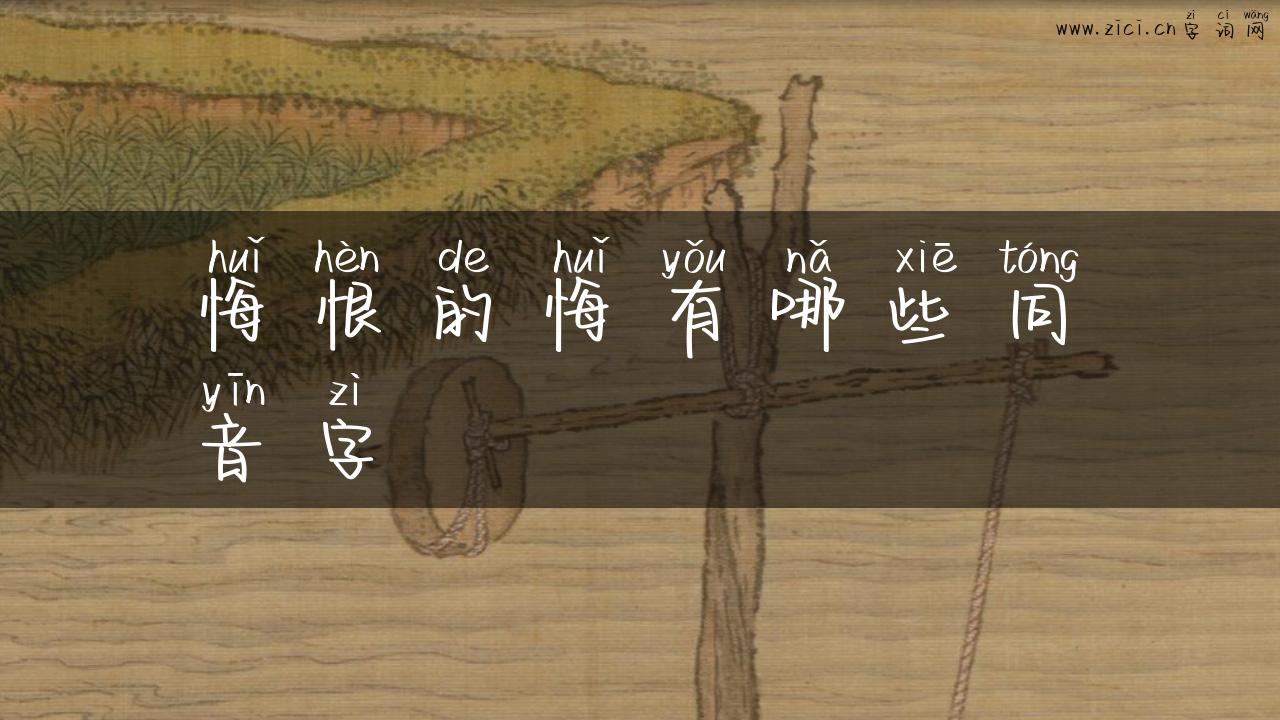 zì cí wǎng
www.zici.cn字词网
huǐ hèn de huǐ yǒu nǎ xiē tóng
悔恨的悔有哪些同
yīn zì
音字